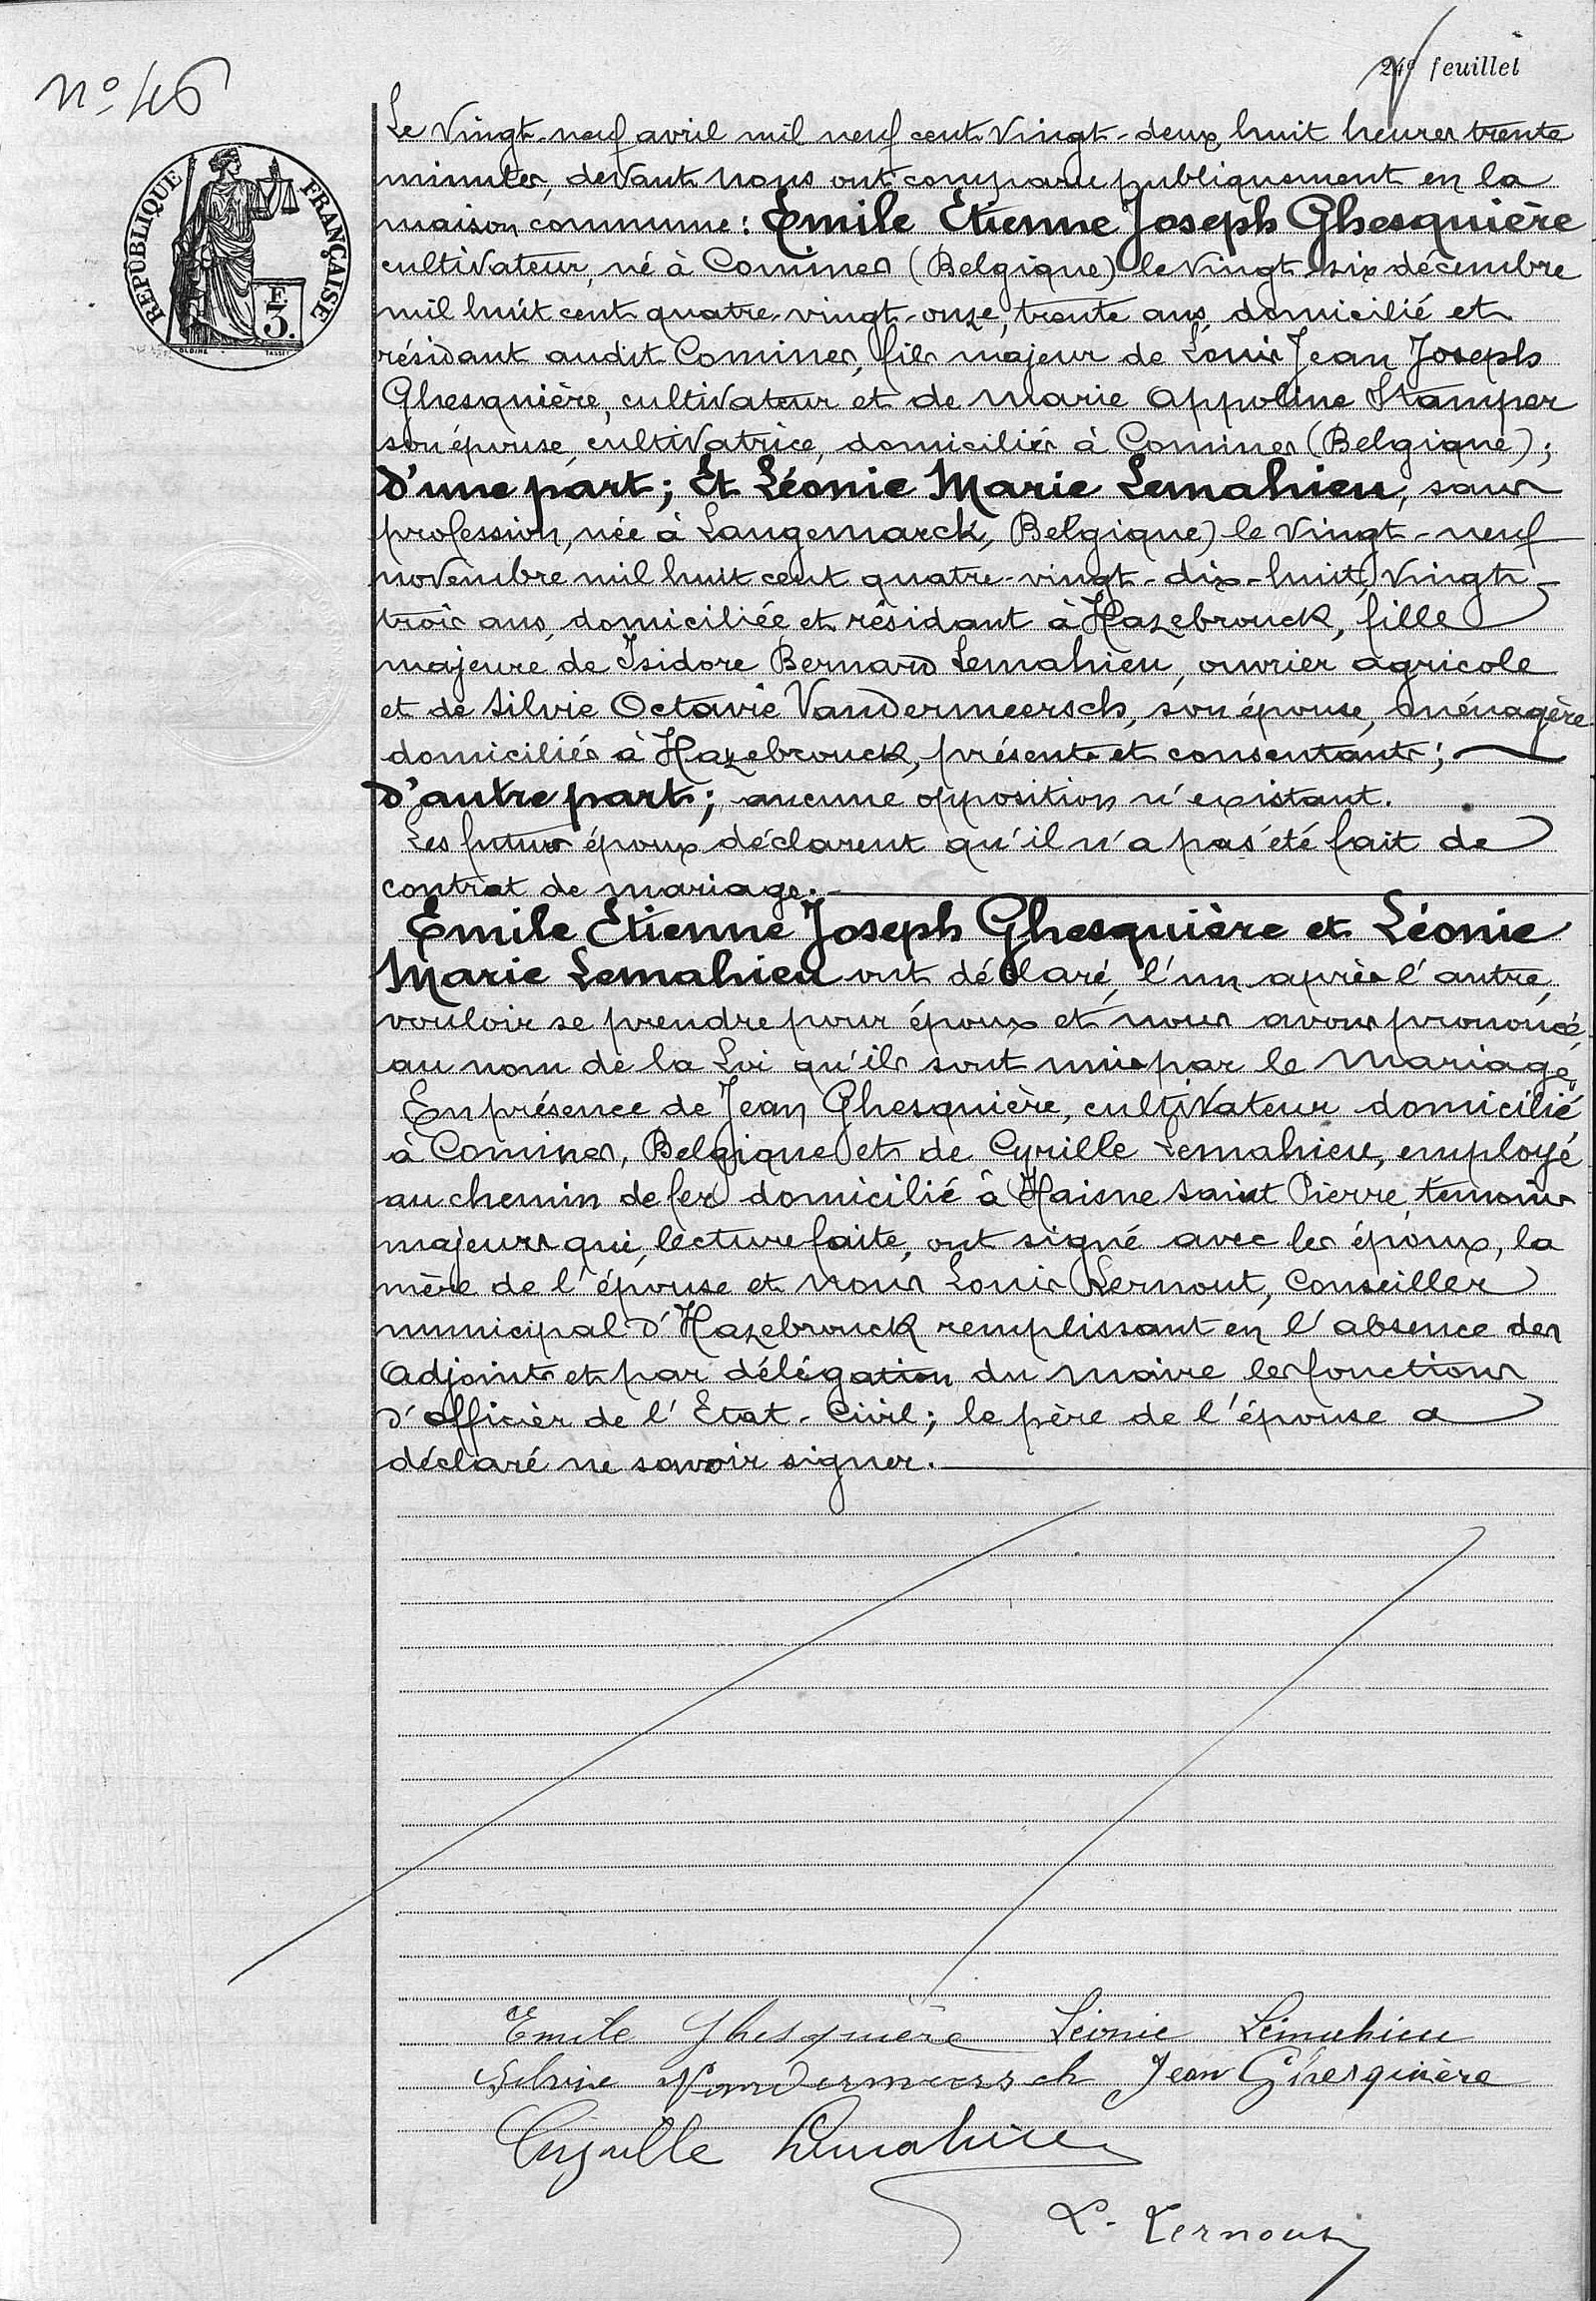 24e feuillet
No 46
RÉPUBLIQUE FRANÇAISE
F.
3.
Le Vingt-neuf avril mil neuf cent Vingt-deux, huit heures trente
minutes, devant nous ont comparu publiquement en la
maison commune : Emile Etienne Joseph Ghesquière
cultivateur, né à Comines (Belgique) le Vingt-six décembre
mil huit cent quatre-vingt-onze, trente ans, domicilié et
résidant audit Comines, fils majeur de Louis Jean Joseph
Ghesquière, cultivateur et de Marie Appoline Stamper
son épouse, cultivatrice, domiciliés à Comines (Belgique);
d'une part ; Et Léonie Marie Lemahieu, sans
profession, née à Langemarck, Belgique) le Vingt-neuf
novembre mil huit cent quatre-vingt-dix-huit, Vingt-
trois ans, domiciliée et résidant à Hazebrouck, fille
majeure de Isidore Bernard Lemahieu, ouvrier agricole
et de Silvie Octavie Vandermeersch, son épouse, ménagère
domiciliés à Hazebrouck, présents et consentants ;
d'autre part ; aucune opposition n'existant.
Les futurs époux déclarent qu'il n'a pas été fait de
contrat de mariage.
Emile Etienne Joseph Ghesquière et Léonie
Marie Lemahieu ont déclaré, l'un après l'autre,
vouloir se prendre pour époux et nous avons prononcé
au nom de la Loi qu'ils sont unis par le mariage.
En présence de Jean Ghesquière, cultivateur domicilié
à Comines, Belgique et de Cyrille Lemahieu, employé
au chemin de fer domicilié à Haisne Saint Pierre, témoins
majeurs qui, lecture faite, ont signé avec les époux, la
mère de l'épouse et nous Louis Lernout, Conseiller
municipal d'Hazebrouck remplissant en l'absence des
Adjoints et par délégation du Maire les fonctions
d'officier de l'Etat-Civil ; le père de l'épouse a
déclaré ne savoir signer.
Emile Ghesquière Léonie Lemahieu
Silvie Vandermeersch Jean Ghesquière
Cyrille Lemahieu
L. Lernout